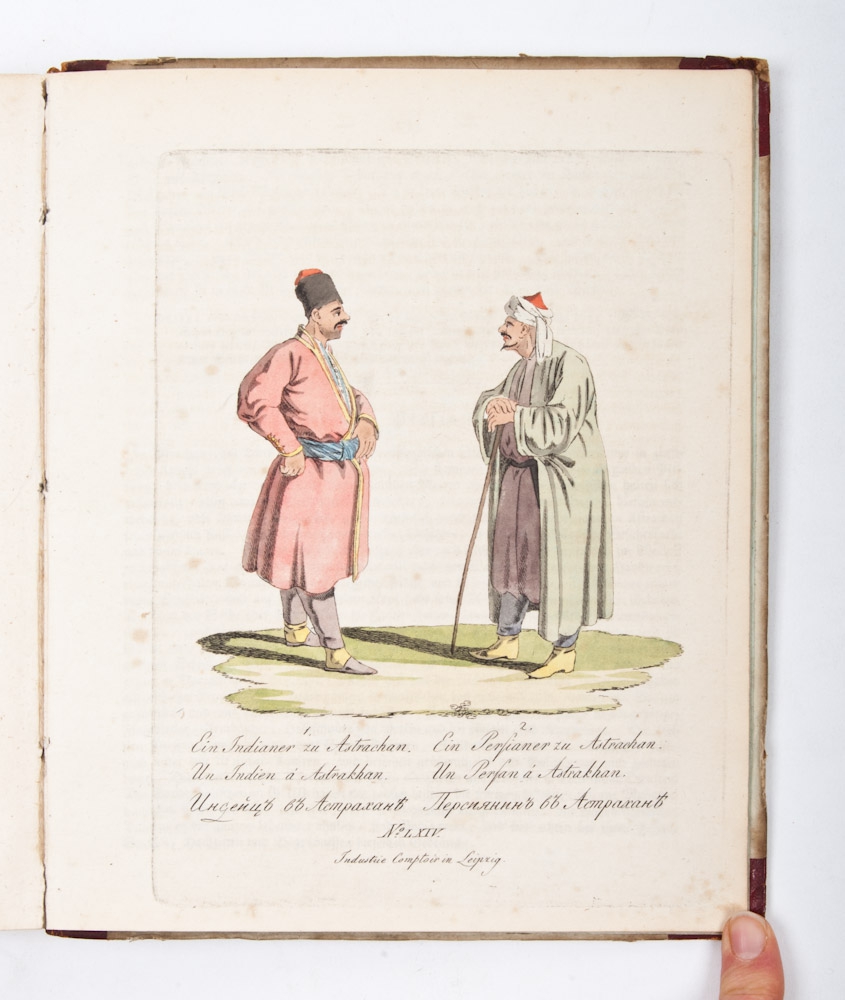 1. 2.
Ein Indianer zu Astrachan. Ein Perſianer zu Astrachan.
Un Indien á Astrakhan. Un Perſan á Astrakhan.
Индейцъ въ Астраханѣ Персиянинъ въ Астраханѣ
No. LXIV.
Industrie Comptoir in Leipzig.